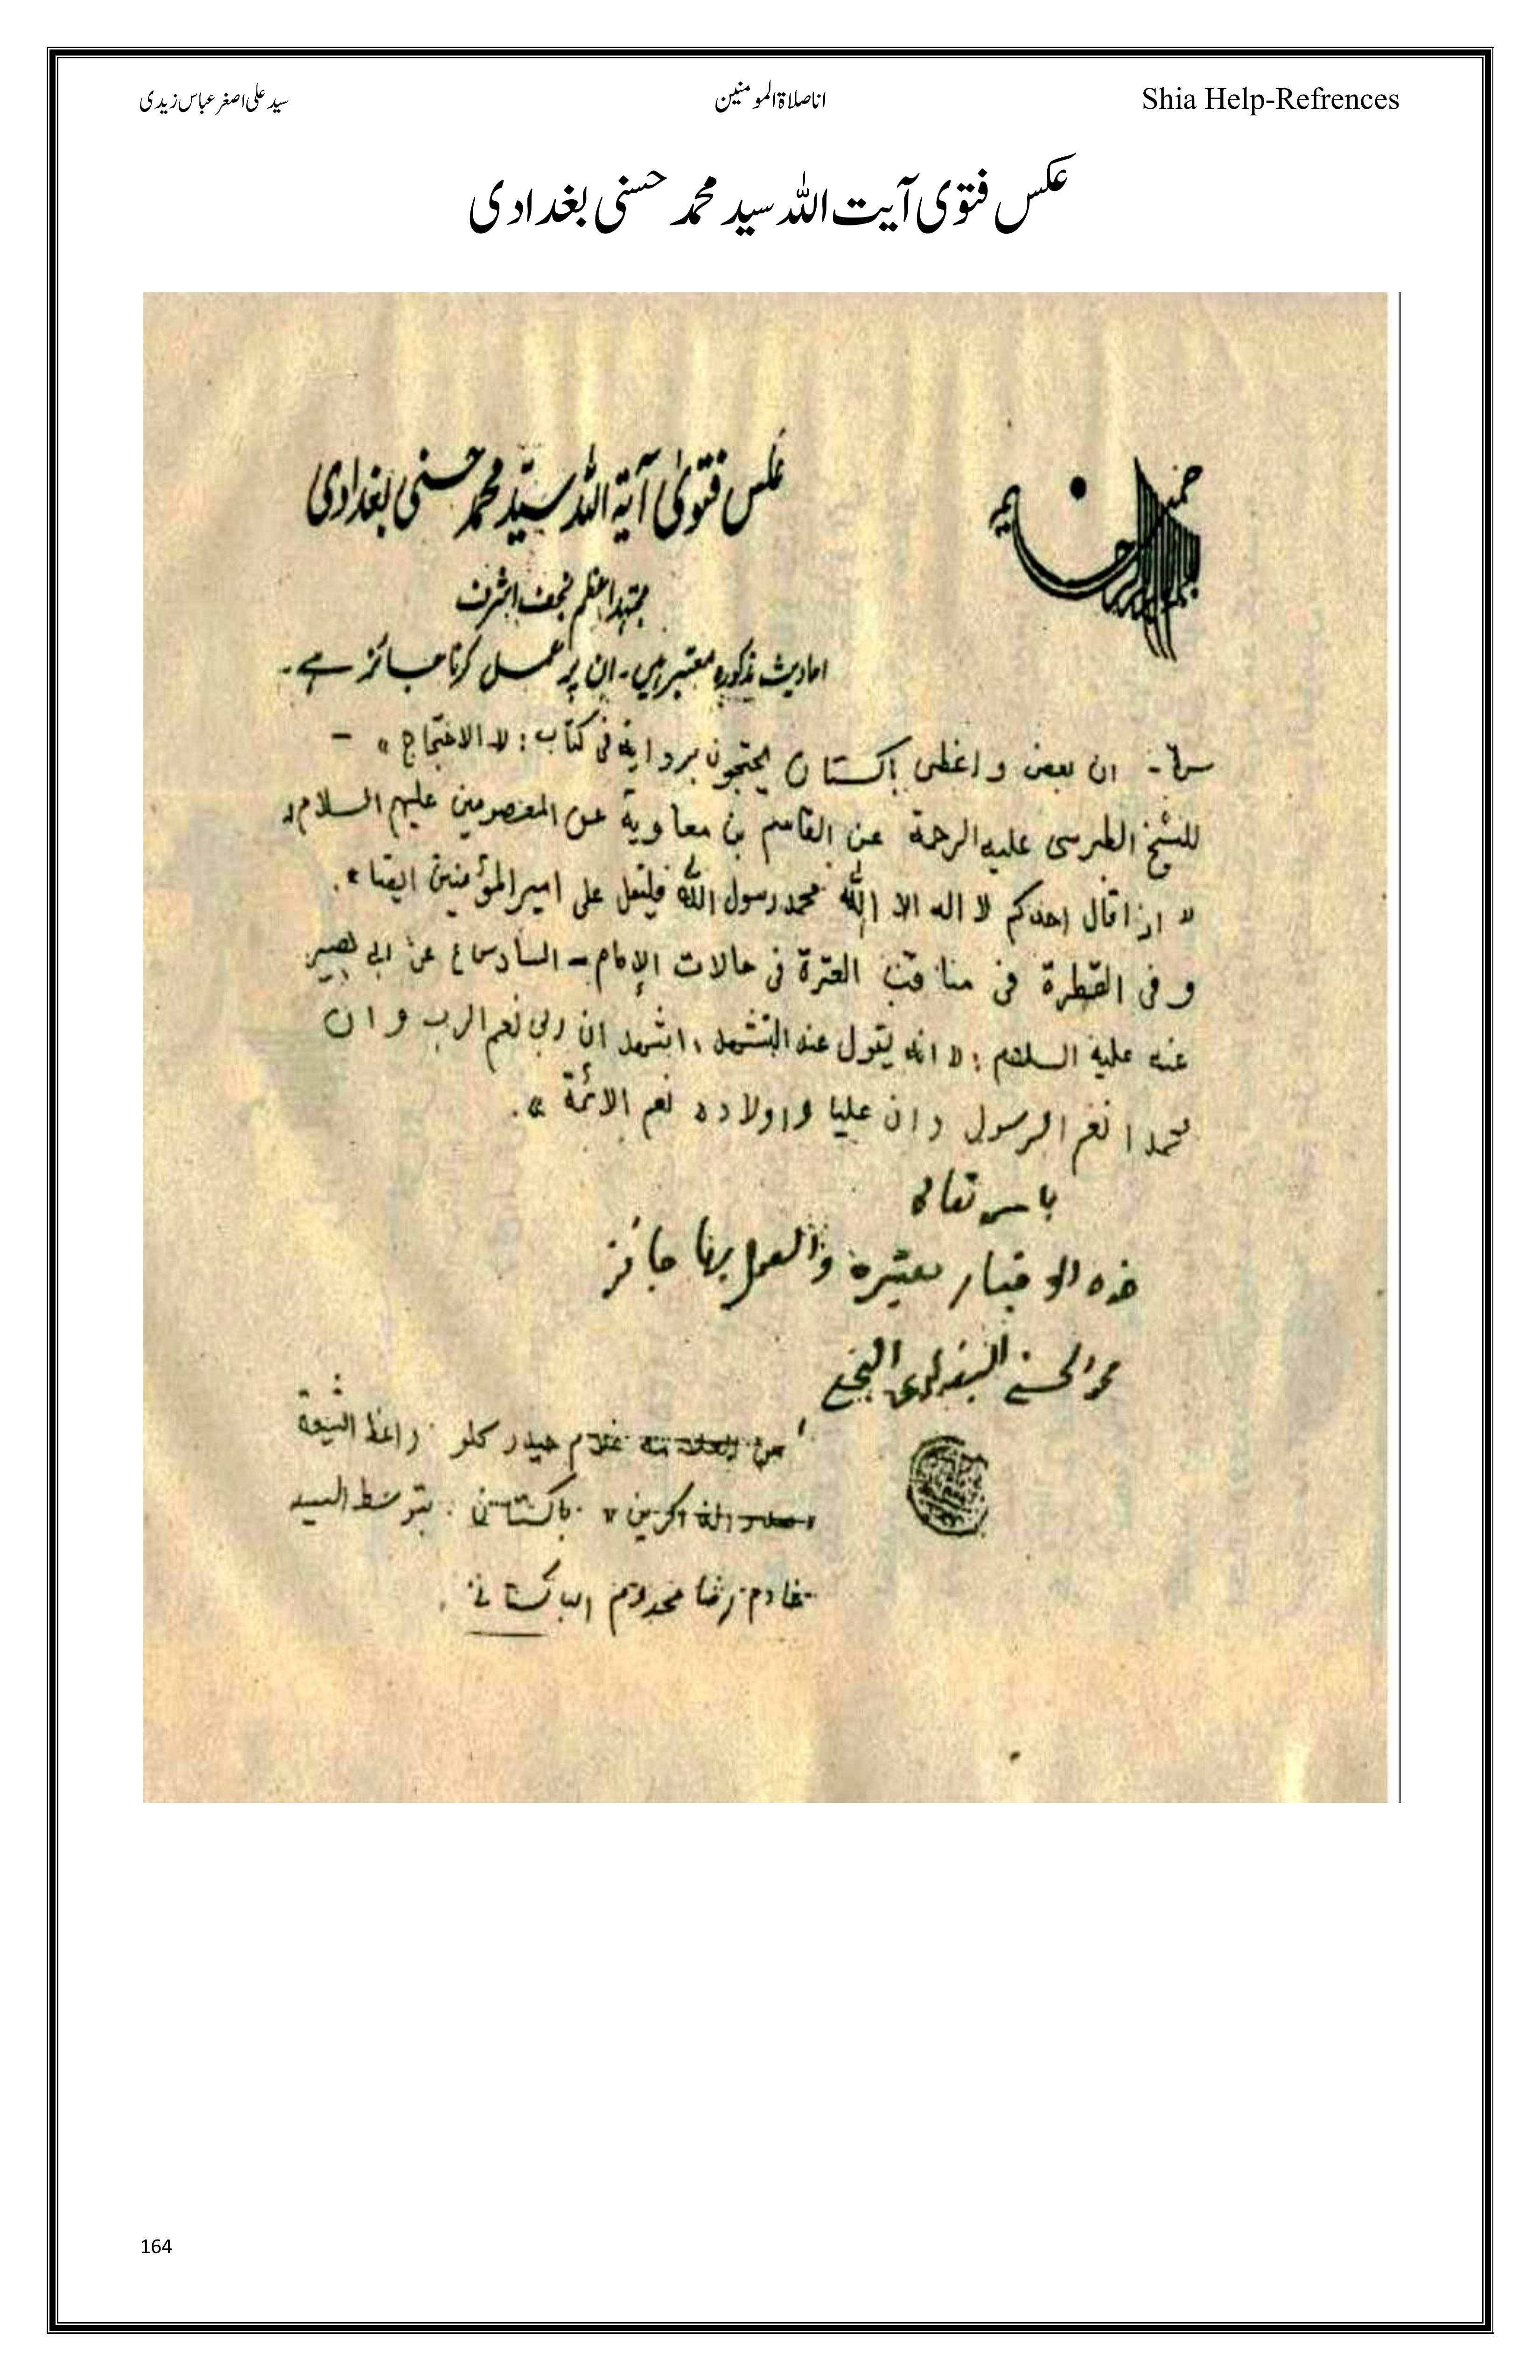 سید علی اصغر عباس زیدی انا صلاۃ المومنین Shia Help-Refrences
عکس فتوی آیت اللہ سید محمد حسنی بغدادی
بسم الله الرحمن الرحيم
عکس فتویٰ آیۃ اللہ سیّد محمد حسنی بغدادی
مجتہد اعظم نجف اشرف
احادیث مذکورہ معتبر ہیں۔ ان پر عمل کرنا جائز ہے۔
ان بعض واعظی باكستان يحتجون برواية فی كتاب: « الاحتجاج » -
للشيخ الطبرسی عليه الرحمة عن القاسم بن معاوية عن المعصومين عليهم السلام
« اذا قال احدكم لا اله الا الله محمد رسول الله فليقل علی امير المؤمنين ايضا ».
و فی القطرة فی مناقب العترة فی حالات الإمام - السادس عن ابی بصير
عنه عليه السلام : « انه يقول عند التشهد ، اشهد ان ربی نعم الرب و ان
محمدا نعم الرسول و ان عليا و اولاده نعم الائمة ».
باسمه تعالى
هذه الاخبار معتبرة والعمل بها جائز
محمد الحسني البغدادي النجفي
من العلامة غلام حيدر كلو واعظ الشيعة
الذاكرين » باكستاني . بتوسط السيد
خادم رضا مخدوم الباكستاني .
164